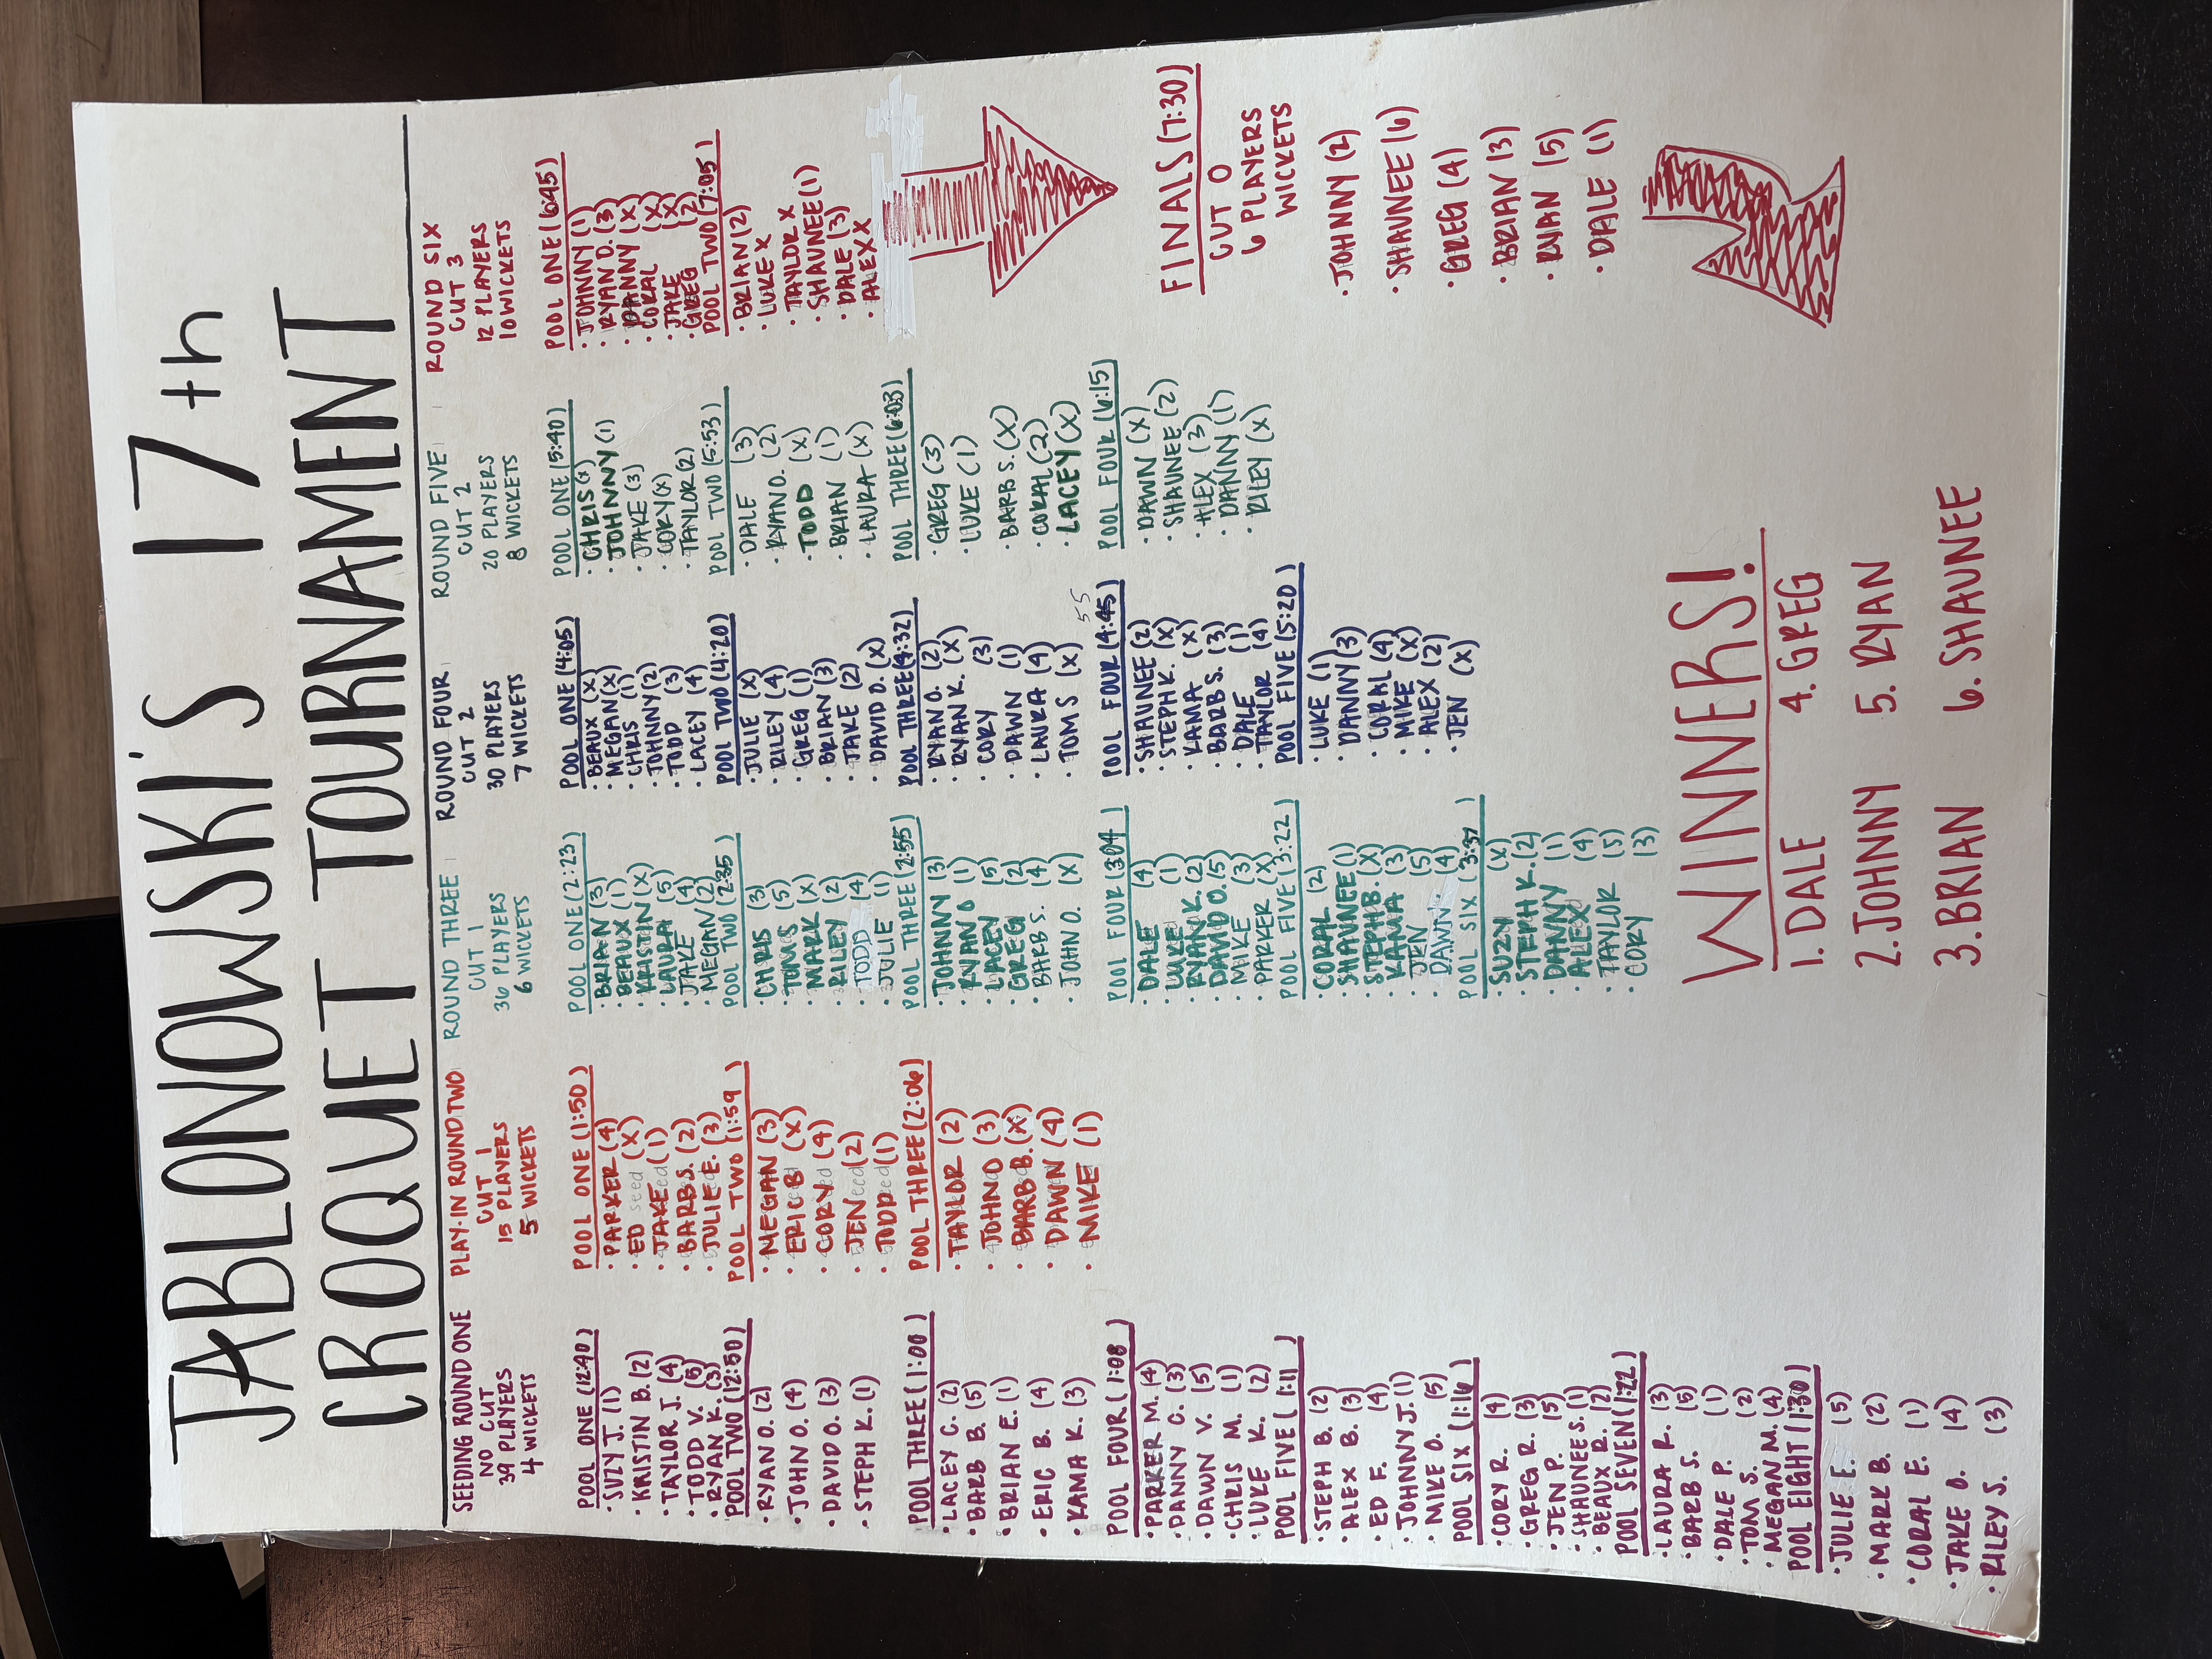 JABLONOWSKI'S 17th
CROQUET TOURNAMENT
SEEDING ROUND ONE
NO CUT
39 PLAYERS
4 WICKETS
POOL ONE (12:40)
• SUZY J. (1)
• KRISTIN B. (2)
• TAYLOR J. (4)
• TODD V. (5)
• RYAN K. (3)
POOL TWO (12:50)
• RYAN O. (2)
• JOHN O. (4)
• DAVID O. (3)
• STEPH K. (1)
POOL THREE (1:00)
• LACEY C. (2)
• BARB B. (5)
• BRIAN E. (1)
• ERIC B. (4)
• KAMA K. (3)
POOL FOUR (1:08)
• PARKER M. (4)
• DANNY C. (3)
• DAWN V. (5)
• CHRIS M. (1)
• LUKE K. (2)
POOL FIVE (1:11)
• STEPH B. (2)
• ALEX B. (3)
• ED F. (4)
• JOHNNY J. (1)
• MIKE O. (5)
POOL SIX (1:16)
• CORY R. (4)
• GREG R. (3)
• JEN P. (5)
• SHAUNEE S. (1)
• BEAUX R. (2)
POOL SEVEN (1:22)
• LAURA R. (3)
• BARB S. (5)
• DALE P. (1)
• TOM S. (2)
• MEGAN M. (4)
POOL EIGHT (1:30)
• JULIE E. (5)
• MARK B. (2)
• CORAL E. (1)
• JAKE O. (4)
• RILEY S. (3)
PLAY-IN ROUND TWO
CUT 1
15 PLAYERS
5 WICKETS
POOL ONE (1:50)
• PARKER (4)
• ED (X)
• JAKE (1)
• BARB S. (2)
• JULIE E. (3)
POOL TWO (1:59)
• MEGAN (3)
• ERIC B (X)
• CORY (4)
• JEN (2)
• TODD (1)
POOL THREE (2:06)
• TAYLOR (2)
• JOHN O (3)
• BARB B. (X)
• DAWN (4)
• MIKE (1)
ROUND THREE
CUT 1
36 PLAYERS
6 WICKETS
POOL ONE (2:23)
• BRIAN (3)
• BEAUX (1)
• KRISTIN (X)
• LAURA (5)
• JAKE (4)
• MEGAN (2)
POOL TWO (2:35)
• CHRIS (3)
• TOM S (5)
• MARK (X)
• RILEY (2)
• TODD (4)
• JULIE (1)
POOL THREE (2:55)
• JOHNNY (3)
• RYAN O (1)
• LACEY (5)
• GREG (2)
• BARB S. (4)
• JOHN O. (X)
POOL FOUR (3:04)
• DALE (4)
• LUKE (1)
• RYAN K. (2)
• DAVID O. (5)
• MIKE (3)
• PARKER (X)
POOL FIVE (3:22)
• CORAL (2)
• SHAUNEE (1)
• STEPH B. (X)
• KAMA (3)
• JEN (5)
• DAWN (4)
POOL SIX (3:37)
• SUZY (X)
• STEPH K. (2)
• DANNY (1)
• ALEX (4)
• TAYLOR (5)
• CORY (3)
ROUND FOUR
CUT 2
30 PLAYERS
7 WICKETS
POOL ONE (4:05)
• BEAUX (X)
• MEGAN (X)
• CHRIS (1)
• JOHNNY (2)
• TODD (3)
• LACEY (4)
POOL TWO (4:20)
• JULIE (X)
• RILEY (4)
• GREG (1)
• BRIAN (3)
• JAKE (2)
• DAVID O. (X)
POOL THREE (4:32)
• RYAN O. (2)
• RYAN K. (X)
• CORY (3)
• DAWN (1)
• LAURA (4)
• TOM S (X)
55
POOL FOUR (4:45)
• SHAUNEE (2)
• STEPH K. (X)
• KAMA (X)
• BARB S. (3)
• DALE (1)
• TAYLOR (4)
POOL FIVE (5:20)
• LUKE (1)
• DANNY (3)
• CORAL (4)
• MIKE (X)
• ALEX (2)
• JEN (X)
ROUND FIVE
CUT 2
20 PLAYERS
8 WICKETS
POOL ONE (5:40)
• CHRIS (X)
• JOHNNY (1)
• JAKE (3)
• CORY (X)
• TAYLOR (2)
POOL TWO (5:53)
• DALE (3)
• RYAN O. (2)
• TODD (X)
• BRIAN (1)
• LAURA (X)
POOL THREE (6:03)
• GREG (3)
• LUKE (1)
• BARB S. (X)
• CORAL (2)
• LACEY (X)
POOL FOUR (6:15)
• DAWN (X)
• SHAUNEE (2)
• ALEX (3)
• DANNY (1)
• RILEY (X)
ROUND SIX
CUT 3
12 PLAYERS
10 WICKETS
POOL ONE (6:45)
• JOHNNY (1)
• RYAN O. (3)
• DANNY (X)
• CORAL (X)
• JAKE (X)
• GREG (2)
POOL TWO (7:05)
• BRIAN (2)
• LUKE X
• TAYLOR X
• SHAUNEE (1)
• DALE (3)
• ALEX X
FINALS (7:30)
CUT 0
6 PLAYERS
WICKETS
• JOHNNY (2)
• SHAUNEE (6)
• GREG (4)
• BRIAN (3)
• RYAN (5)
• DALE (1)
WINNERS!
1. DALE 4. GREG
2. JOHNNY 5. RYAN
3. BRIAN 6. SHAUNEE